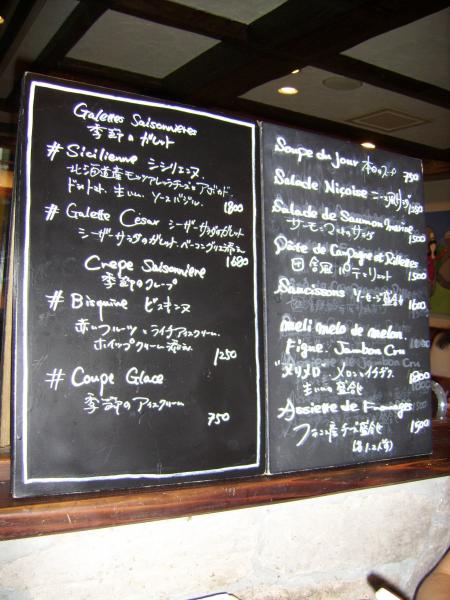 Galettes Saisonnières
季節のガレット
# Sicilienne シシリエンヌ
北海道産モッツアレッラチーズのアボカド、
ドットト、生ハム、ソースバジル。
1800
# Galette César シーザーサラダのガレット
シーザーサラダのガレット、ベーコングリエ添え
1680
Crepe Saisonnière
季節のクレープ
# Bisquine ビスキンヌ
赤いフルーツ、ライチアイスクリーム、
ホイップクリーム添え
1250
# Coupe Glace
季節のアイスクリーム
750
Soupe du jour 本日のスープ 750
Salade Niçoise ニース風サラダ
Salade de Saumon Mariné
サーモンマリネのサラダ 1500
Pâte de Campagne et Rillettes
田舎風パテ、リエット 1500
Saucissons ソーセージ盛合せ 1600
Meli Melo de melon.
Figue. Jambon Cru
メリメロ メロン、イチヂク
生ハム盛合せ 1800
Assiette de Fromages
フランス産チーズ盛合せ 1500